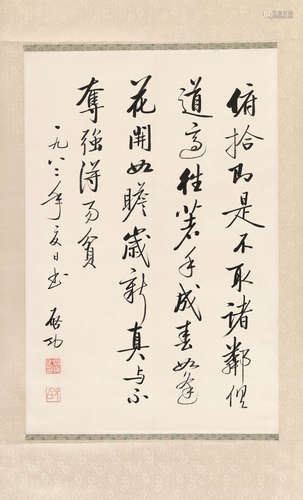 俯拾即是不取諸鄰俱
道適往著手成春如逢
花開如瞻歲新真与不
奪強得易貧
一九八二年夏日書 啓功